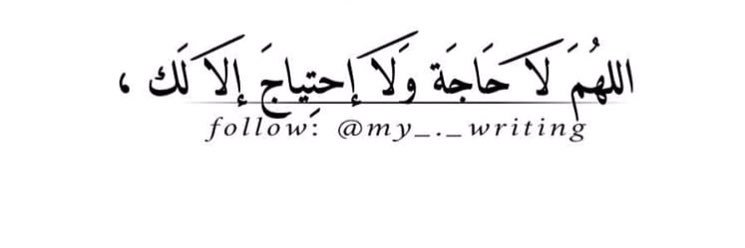 اللهُمَ لَا حَاجَة وَلَا إحتِياجَ إلا لَك ،
follow: @my_._writing